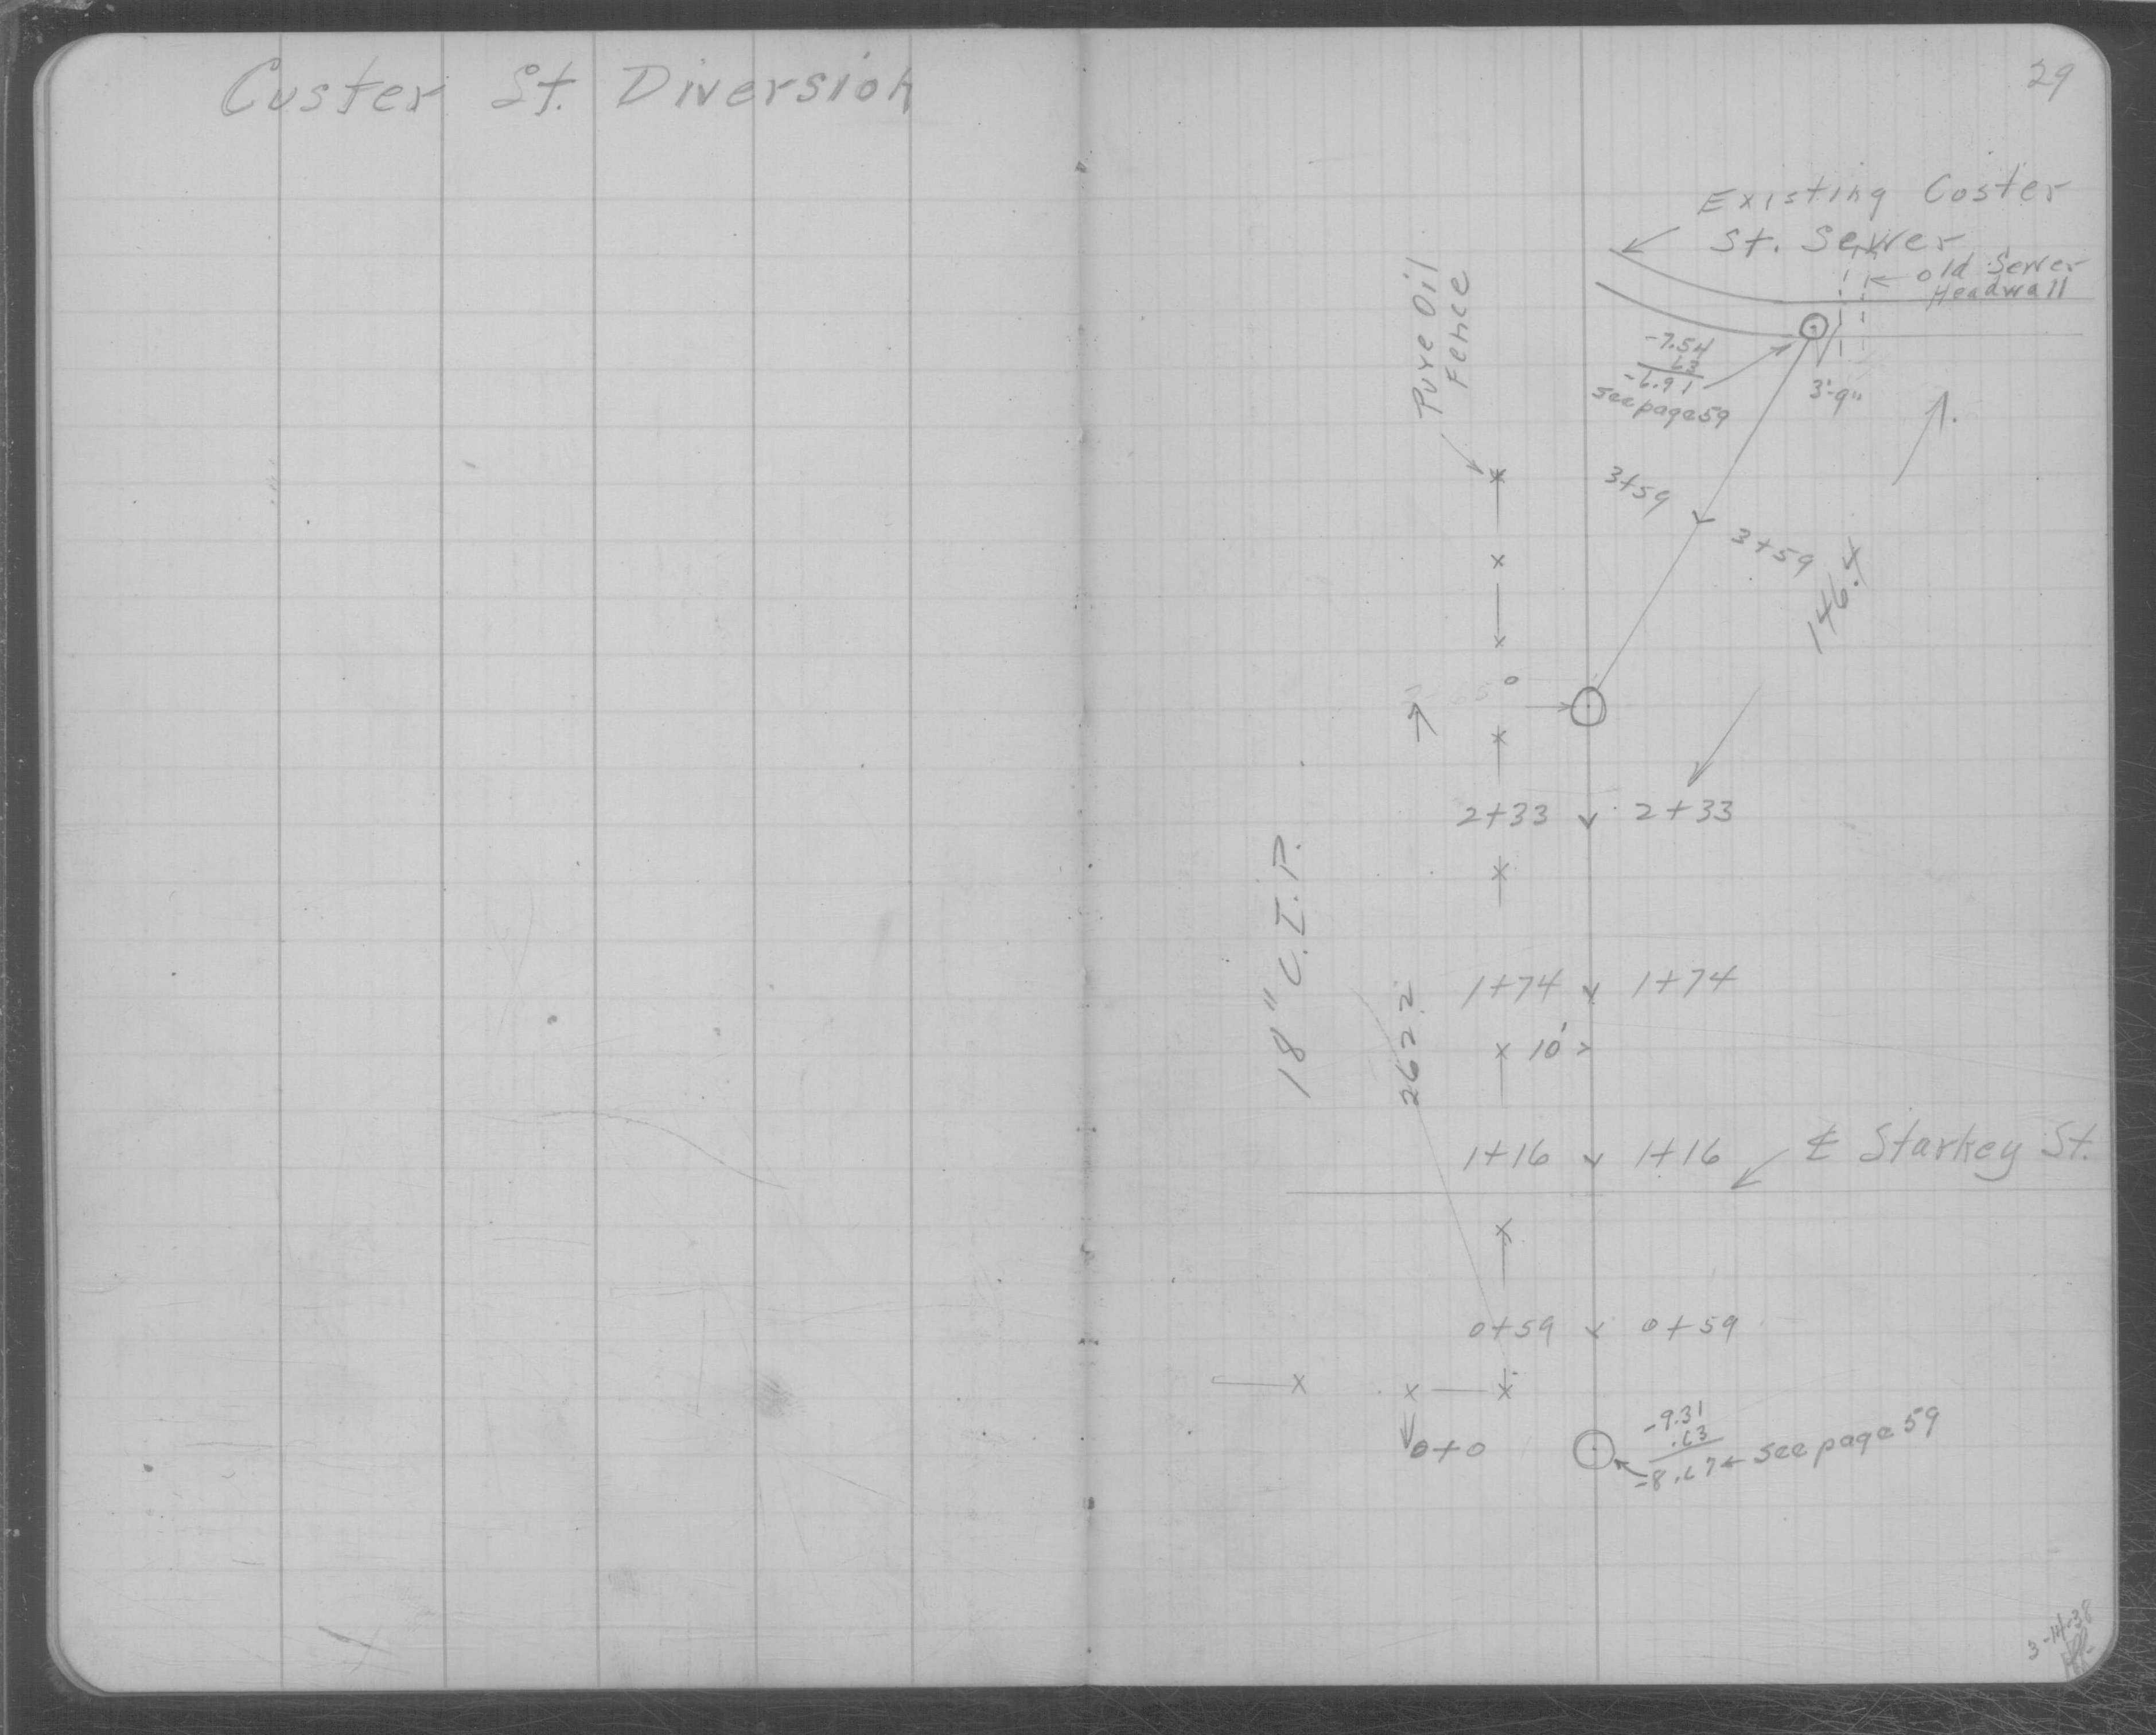 Custer St. Diversion
29
Existing Custer
St. Sewer
Old Sewer
Headwall
Pure Oil
Fence
-7.54
.63
-6.91
see page 59
3'-9"
3+59
3+59
146.4
2+33
2+33
18" C.I.P.
262.2
1+74
1+74
10'
1+16
1+16
℄ Starkey St.
0+59
0+59
0+0
-9.31
.63
-8.67
see page 59
3-14-38